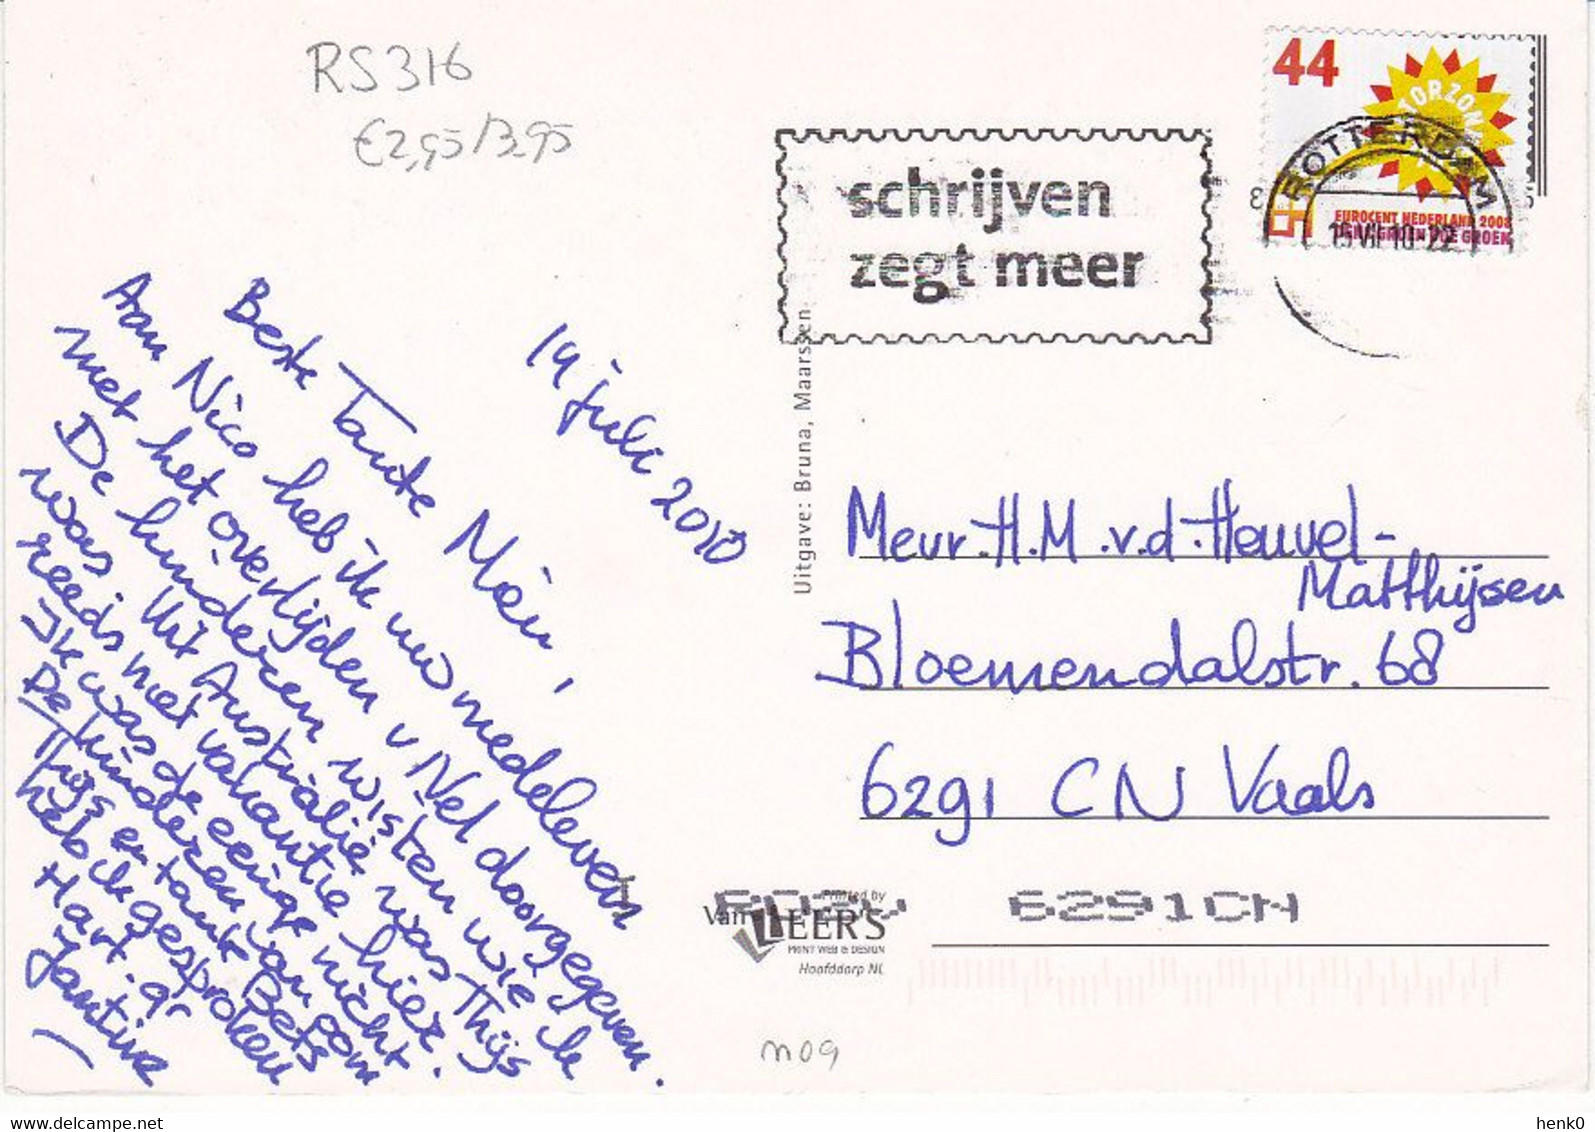 RS316
€2,95/3,95
44
TORZON
EUROCENT NEDERLAND 2008
ROTTERDAM
15 VII 10-22
schrijven
zegt meer
Uitgave: Bruna, Maarssen
14 juli 2010
Beste Tante Mien,
Aan Nico heb ik uw medeleven
met het overlijden v Nel doorgegeven.
De kinderen wisten wie ik
was. Uit Australië was Thijs
reeds met vakantie hier.
Ik was de enige nicht
De kinderen van oom
Thijs en tante Bets
heb ik gesproken
Hart. gr
Jantine
Mevr. H.M. v.d. Heuvel-
Matthijsen
Bloemendalstr. 68
6291 CN Vaals
6291CN
Printed by
Van LEER'S
PRINT WEB & DESIGN
Hoofddorp NL
m09
www.delcampe.net
henk0